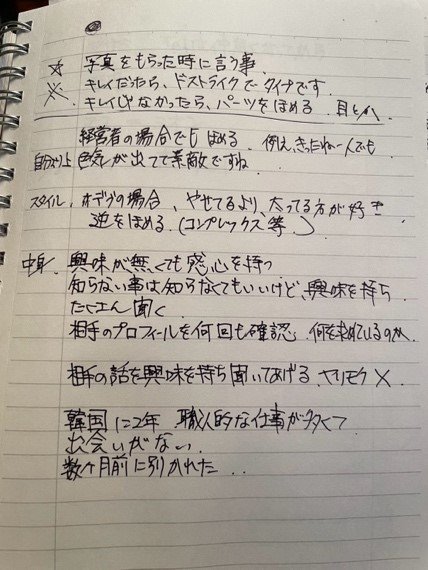 ☆ 写真をもらった時に言う事
※ キレイだったら、ドストライクでータイプです
キレイじゃなかったら、パーツをほめる 目とか
経営者の場合でもほめる 例え、きったねー人でも
自分より 色気が出てて素敵ですね
スタイル、ホデブの場合、やせてるより、太ってる方が好き
逆をほめる(コンプレックス等)
中身、興味が無くても感心を持つ
知らない事は知らなくてもいいけど、興味を持ち
たくさん聞く
相手のプロフィールを何回も確認 何を求めているのか、
相手の話を興味を持ち聞いてあげる ヤリモク×
韓国に2年 職人的な仕事が多くて
出会いがない
数ヶ月前に別かれた...